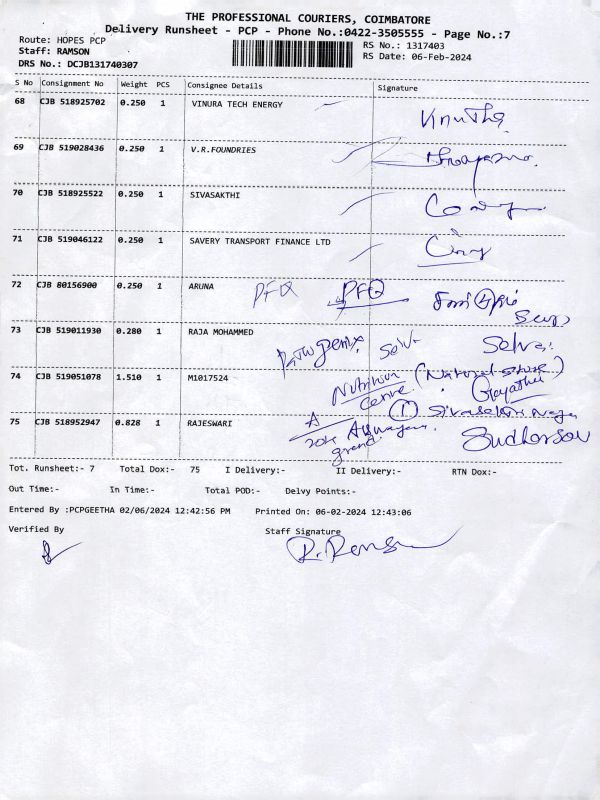 THE PROFESSIONAL COURIERS, COIMBATORE
Delivery Runsheet - PCP - Phone No.:0422-3505555 - Page No.:7
Route: HOPES PCP
RS No.: 1317403
Staff: RAMSON
RS Date: 06-Feb-2024
DRS No.: DCJB131740307
S No Consignment No Weight PCS Consignee Details Signature
68 CJB 518925702 0.250 1 VINURA TECH ENERGY
69 CJB 519028436 0.250 1 V.R.FOUNDRIES
70 CJB 518925522 0.250 1 SIVASAKTHI
71 CJB 519046122 0.250 1 SAVERY TRANSPORT FINANCE LTD
72 CJB 80156900 0.250 1 ARUNA
73 CJB 519011930 0.280 1 RAJA MOHAMMED
Selva
74 CJB 519051078 1.510 1 M1017524
Nutrition
Centre
Gayathri
75 CJB 518952947 0.828 1 RAJESWARI
Sudharsan
Tot. Runsheet:- 7 Total Dox:- 75 I Delivery:- II Delivery:- RTN Dox:-
Out Time:- In Time:- Total POD:- Delvy Points:-
Entered By :PCPGEETHA 02/06/2024 12:42:56 PM Printed On: 06-02-2024 12:43:06
Verified By Staff Signature